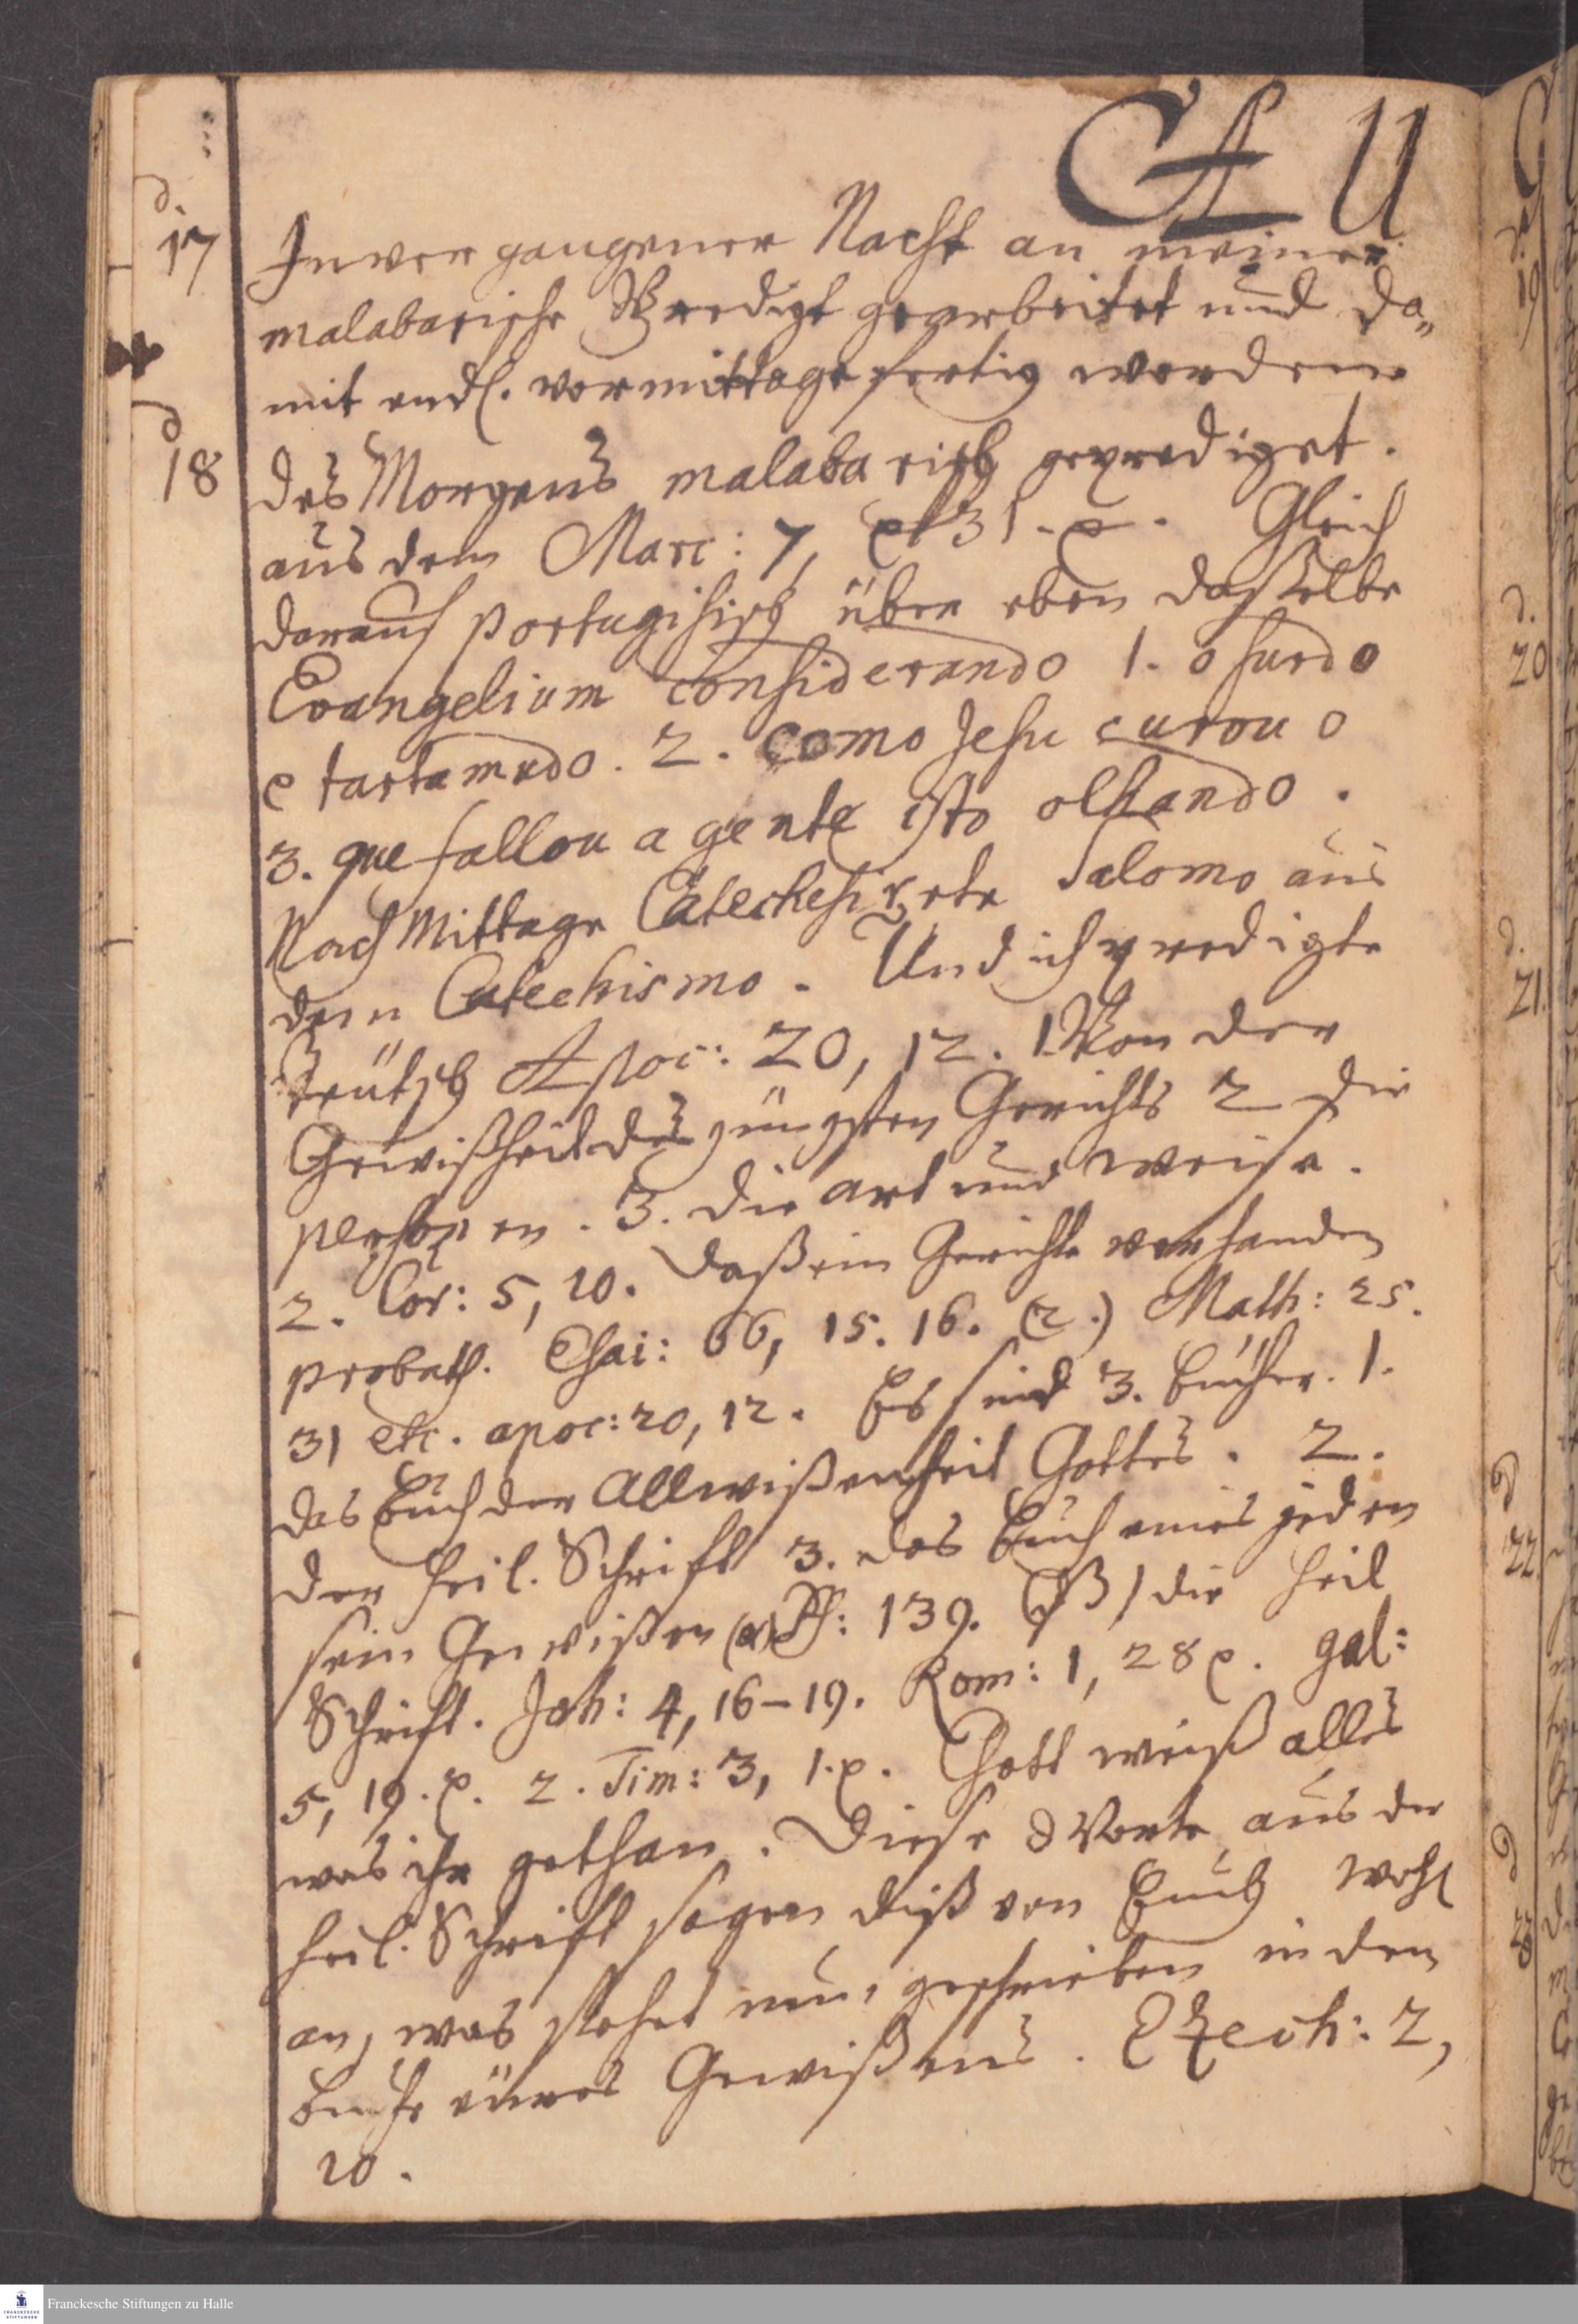 A U
d.
17
In vergangener Nacht an meiner
malabarische Predigt gearbeitet und da„
mit endl. vormittage fertig worden.
d
18
des Morgens malabarisch geprediget.
aus dem Marc: 7, 31. Gleich
darauf portugisisch über eben dasselbe
Evangelium considerando 1. o surdo
e tartamudo. 2. como Jesu curou o
3. que fallou a gente isto olhando.
Nach Mittage Catechesirete Salomo aus
dem Catechismo. Und ich predigte
Teütsch Apoc: 20, 12. 1. Von der
Gewißheit des jüngsten Gerichts 2 die
persohnen. 3. die art und weise.
2. Cor: 5, 10. daß ein Gerichte vorhanden
probath. Esai: 66, 15. 16. (2.) Math: 25.
31 etc. apoc: 20, 12. Es sind 3. Bücher. 1.
das Buch der Allwißenheit Gottes. 2.
der heil. Schrift 3. das Buch eines jeden
sein Gewißen (α) Ps: 139. (β) die heil
Schrift. Joh: 4, 16–19. Rom: 1, 28 p. gal:
5, 19. p. 2. Tim: 3, 1. p. Gott weiß alles
was ihr gethan. Diese Worte aus der
heil. Schrift sagen diß von Euch wohl
an, was stehet nun geschrieben in dem
Buche eures Gewißens. Ezech: 2,
10.
d.
19
d.
20
d.
21.
d
22.
d
23
Franckesche Stiftungen zu Halle